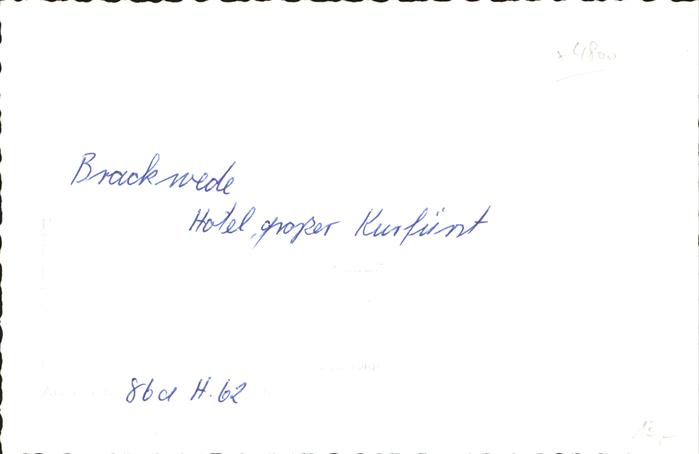 x 4800
Brackwede
Hotel „großer Kurfürst
86a H. 62